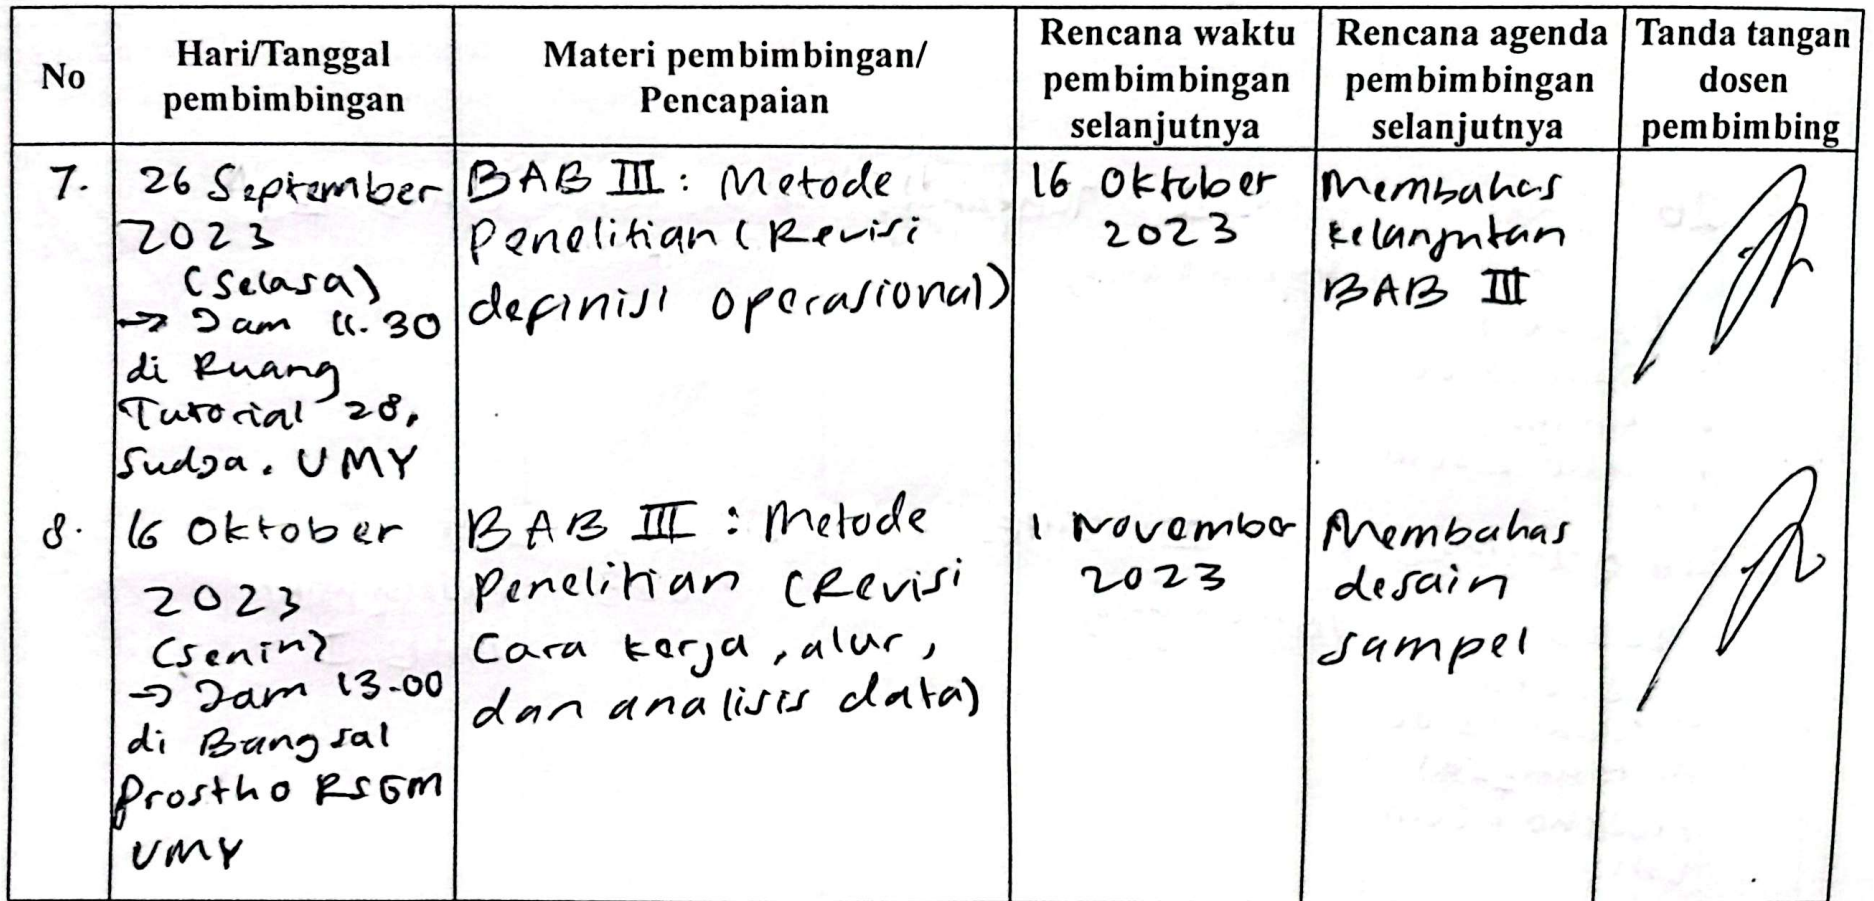 No
Hari/Tanggal
pembimbingan
Materi pembimbingan/
Pencapaian
Rencana waktu
pembimbingan
selanjutnya
Rencana agenda
pembimbingan
selanjutnya
Tanda tangan
dosen
pembimbing
7.
26 September
2023
(Selasa)
→ Jam 11.30
di Ruang
Tutorial 28,
Sudja. UMY
BAB III : Metode
Penelitian (Revisi
definisi operasional)
16 Oktober
2023
Membahas
kelanjutan
BAB III
8.
16 Oktober
2023
(Senin)
→ Jam 13.00
di Bangsal
Prostho RSGM
UMY
BAB III : Metode
Penelitian (Revisi
Cara kerja, alur,
dan analisis data)
1 November
2023
Membahas
desain
sampel